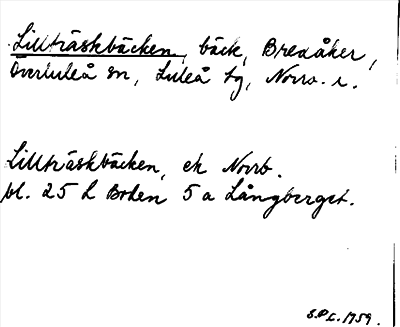 Lillträskbäcken, bäck, Bredåker,
Överluleå sn, Luleå tg, Norrb. l.
Lillträskbäcken, ek Norrb.
bl. 25 L Boden 5 a Långberget.
S.P.L. 1959.